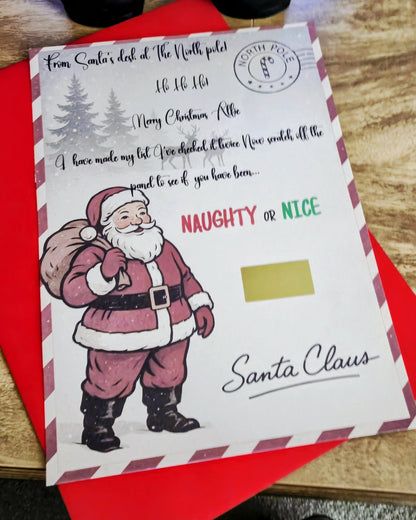 From Santa's desk at The North pole!
NORTH POLE
Ho Ho Ho!
Merry Christmas Alfie
I have made my list I've checked it twice Now scratch off the
panel to see if you have been...
NAUGHTY OR NICE
Santa Claus